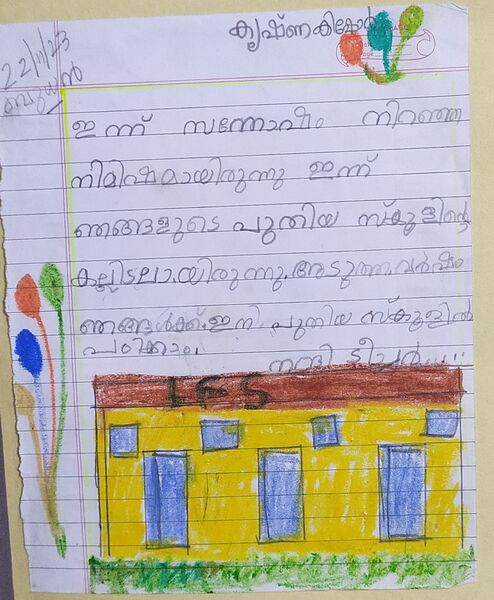 കൃഷ്ണകിഷോർ
22/11/23
ബുധൻ
ഇന്ന് സന്തോഷം നിറഞ്ഞ
നിമിഷമായിരുന്നു ഇന്ന്
ഞങ്ങളുടെ പുതിയ സ്കൂളിന്റെ
കല്ലിടലായിരുന്നു. അടുത്ത വർഷം
ഞങ്ങൾക്ക് ഇനി പുതിയ സ്കൂളിൽ
പഠിക്കാം.
നന്ദി ടീച്ചർ.....
LFS